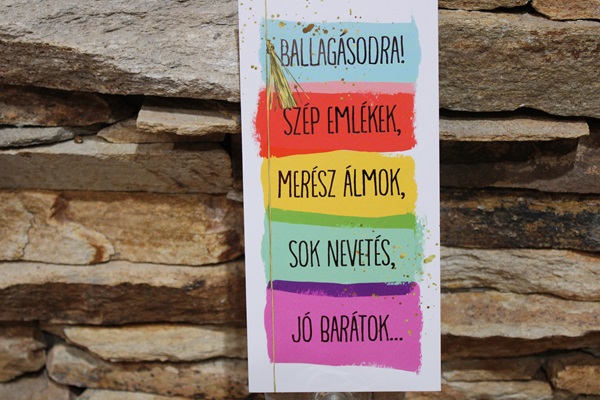 BALLAGÁSODRA!
SZÉP EMLÉKEK,
MERÉSZ ÁLMOK,
SOK NEVETÉS,
JÓ BARÁTOK...